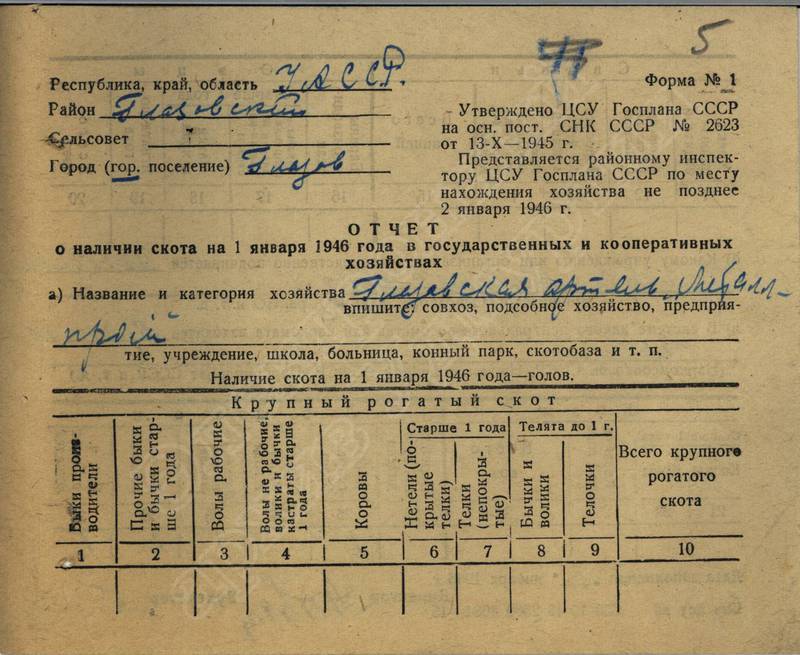 5
Республика, край, область УАССР.
Форма № 1
Район Глазовский
Сельсовет
Город (гор. поселение) Глазов
Утверждено ЦСУ Госплана СССР
на осн. пост. СНК СССР № 2623
от 13-X—1945 г.
Представляется районному инспек-
тору ЦСУ Госплана СССР по месту
нахождения хозяйства не позднее
2 января 1946 г.
ОТЧЕТ
о наличии скота на 1 января 1946 года в государственных и кооперативных
хозяйствах
а) Название и категория хозяйства Глазовская артель „Металл-
впишите: совхоз, подсобное хозяйство, предприя-
пром"
тие, учреждение, школа, больница, конный парк, скотобаза и т. п.
Наличие скота на 1 января 1946 года—голов.
Крупный рогатый скот
Быки произ-
водители
Прочие быки
и бычки стар-
ше 1 года
Волы рабочие
Волы не рабочие,
волики и бычки
кастраты старше
1 года
Коровы
Старше 1 года
Нетели (по-
крытые
телки)
Телки
(непокры-
тые)
Телята до 1 г.
Бычки и
волики
Телочки
Всего крупного
рогатого
скота
1 2 3 4 5 6 7 8 9 10